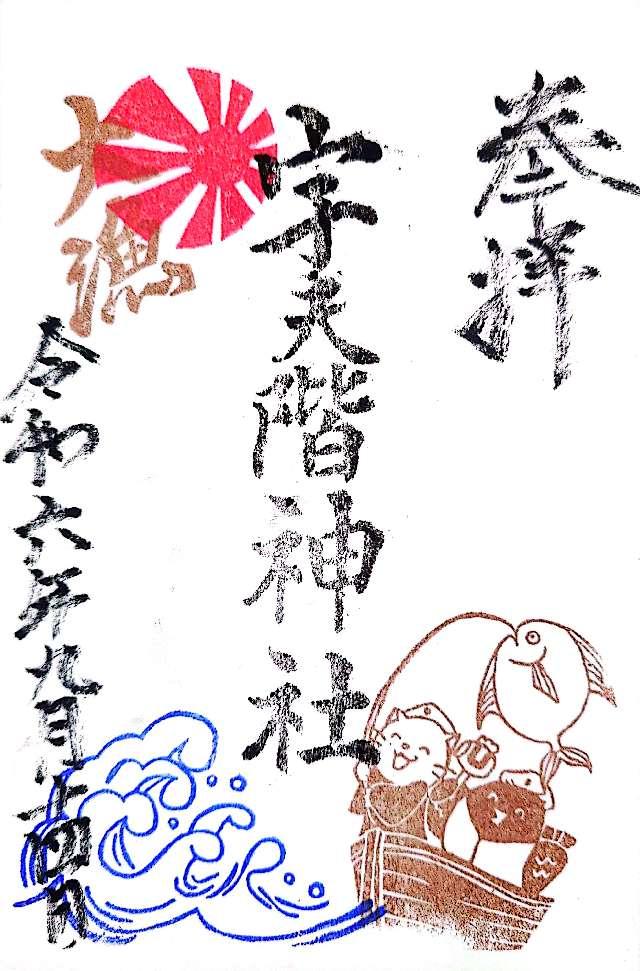 奉拝
宇夫階神社
大漁
令和六年九月十四日